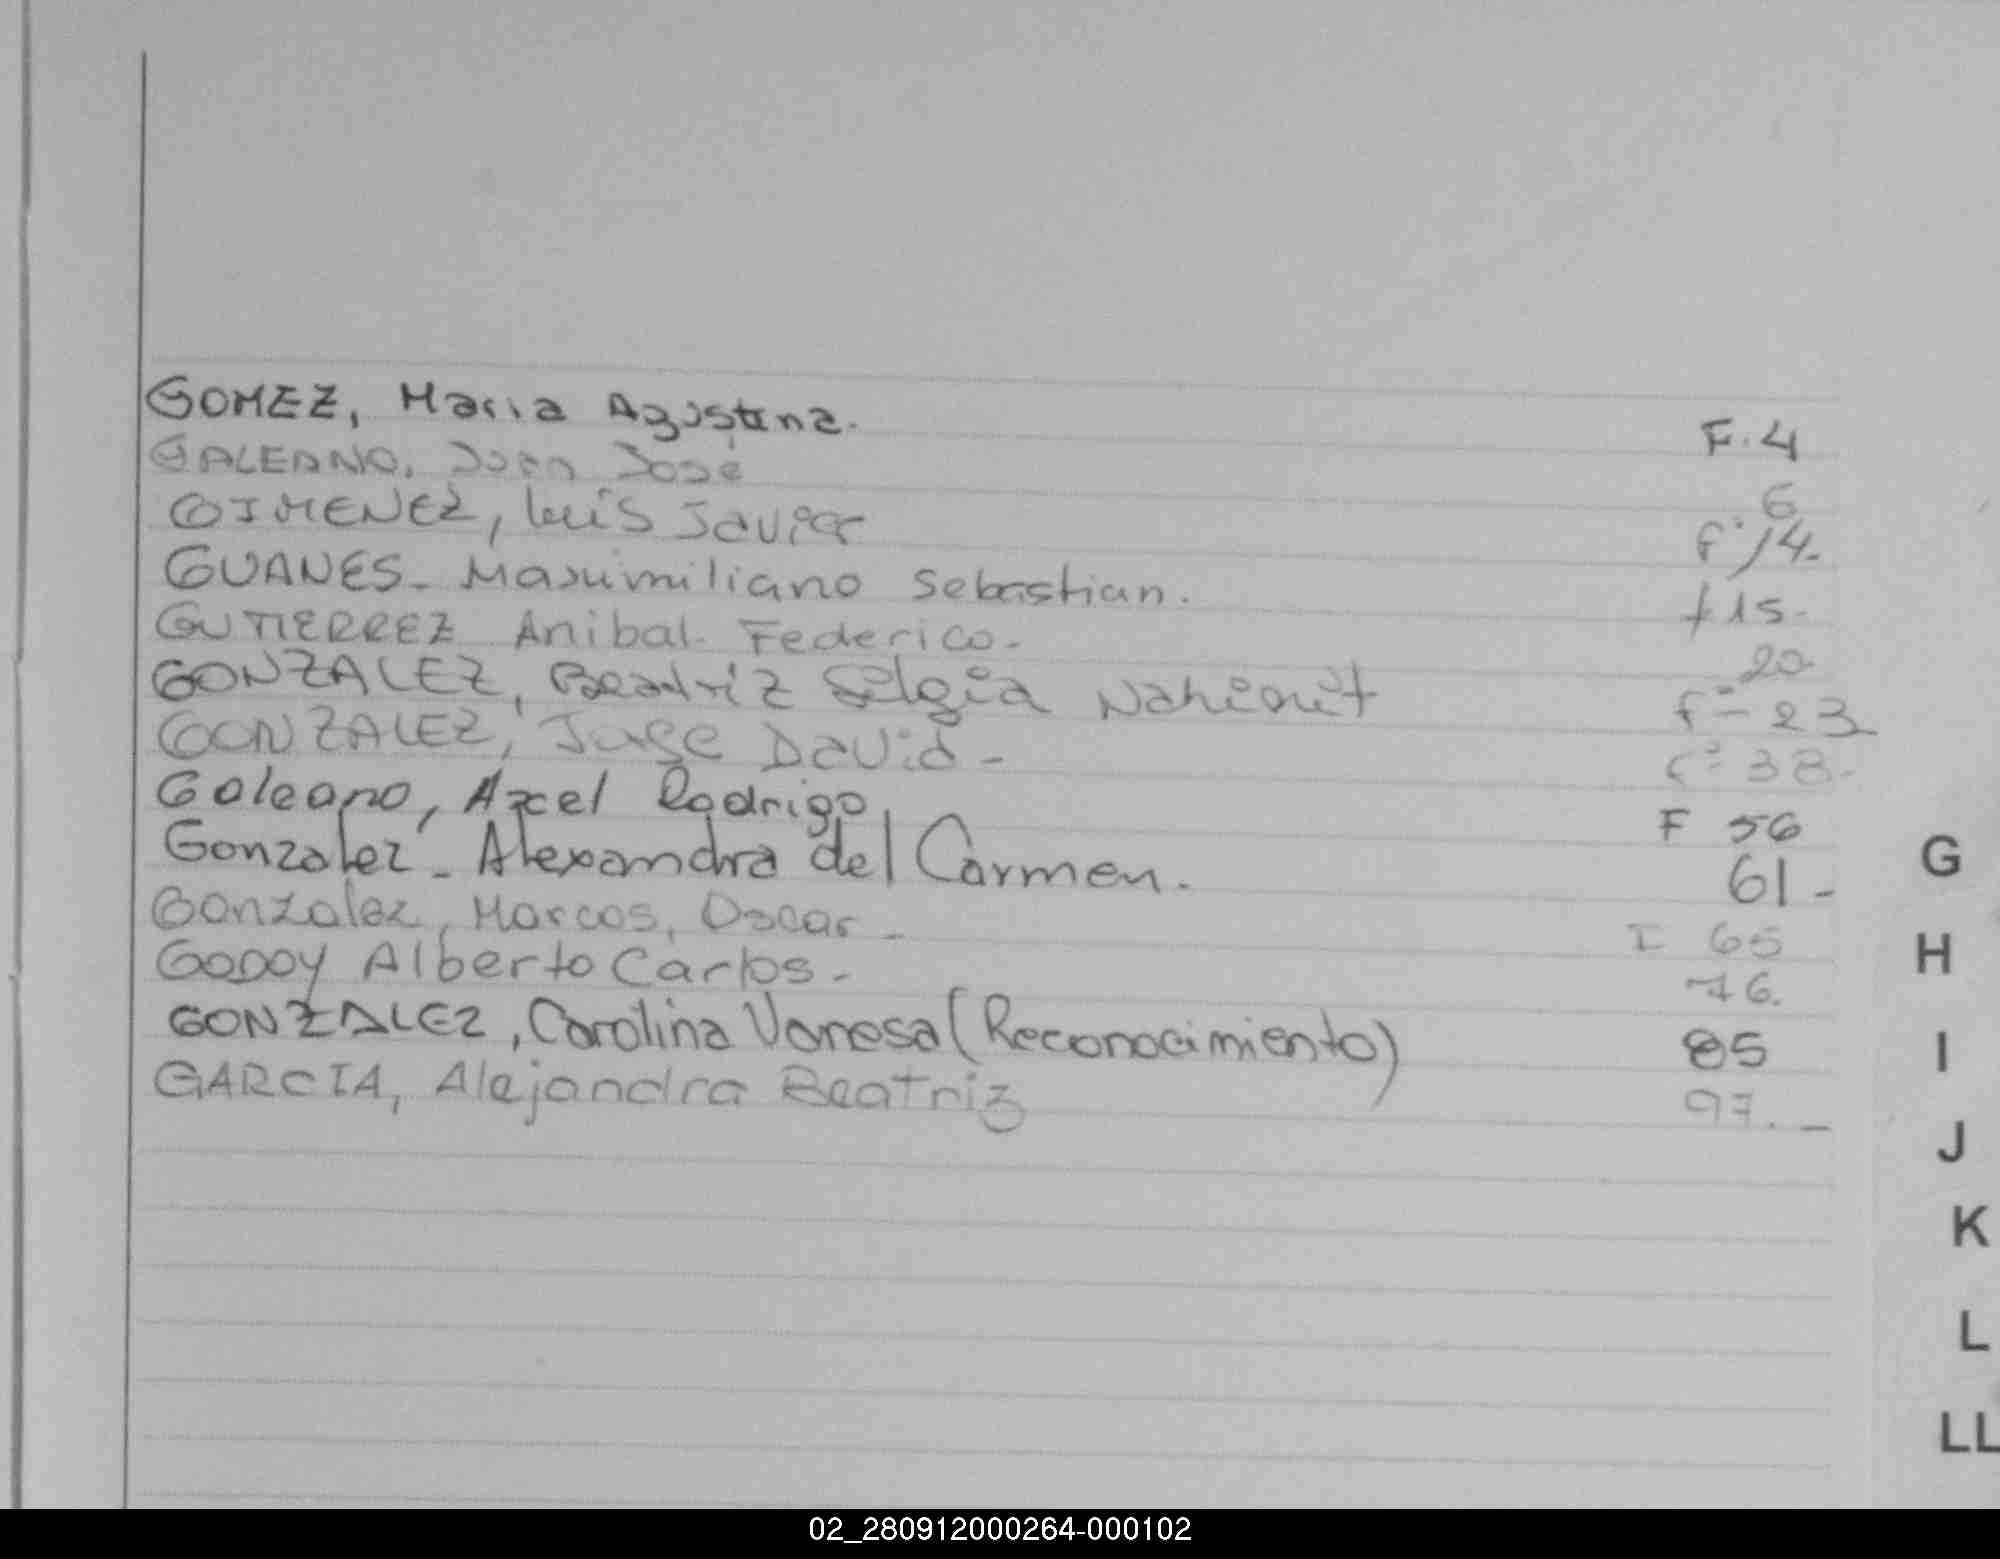 GOMEZ, Maria Agustina. F. 4
GALEANO, Juan José 6
GIMENEZ, Luis Javier fº 14-
GUANES- Maximiliano Sebastian. f 15-
GUTIERREZ Anibal- Federico- 20
GONZALEZ, Beatriz Nahiarit fº- 23
GONZALEZ, Jose David- fº 38-
Galeano, Axcel Rodrigo F 56
Gonzalez - Alexandra del Carmen. 61-
Gonzalez, Marcos, Oscar- 65
GODOY Alberto Carlos- 76.
GONZALEZ, Carolina Vanesa (Reconocimiento) 85
GARCIA, Alejandra Beatriz 97.-
G
H
I
J
K
L
LL
02_280912000264-000102